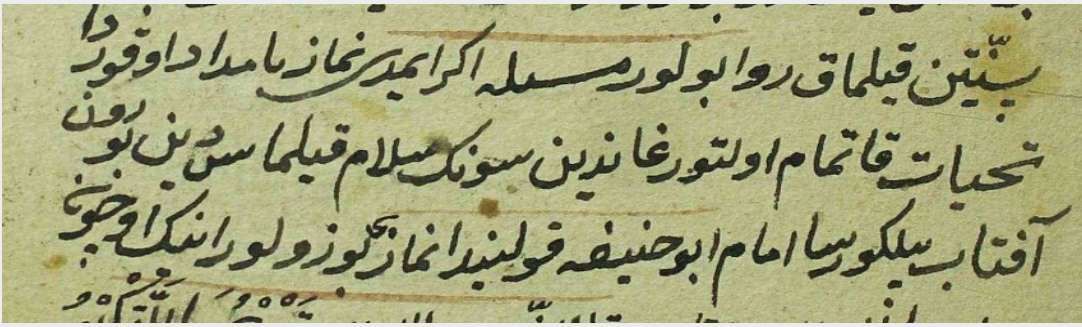 سنّتین قیلماق روا بولور مسله اکر ایمدی نماز بامدادا وقوردا
تحیات قاتمام اولتورغاندین سونک سلام قیلماس دین بورون
آفتاب بیلکورسا امام ابو حنیفه قولیندا نمازی بوزولور انینک اوچون